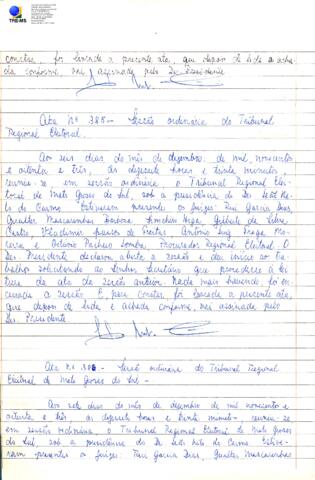 TRE-MS
constar, foi lavrada a presente ata, que depois de lida e acha-
da conforme, vai assinada pelo Dr. Presidente
Ata nº 385 - Sessão ordinária do Tribunal
Regional Eleitoral.
Aos seis dias do mês de dezembro de mil, novecentos
e oitenta e três, às dezessete horas e trinta minutos,
reuniu-se, em sessão ordinária, o Tribunal Regional Elei-
toral de Mato Grosso do Sul, sob a presidência do Des.
do Carmo. Estiveram presentes os juízes: Rui Garcia Dias,
Gualter Mascarenhas Barbosa, Higa, Gilberto da Silva
Castro, Vladimir de Freitas, Antônio Braga
e Octávio Pacheco Lomba, Procurador Regional Eleitoral. O
Des. Presidente declarou aberta a sessão e deu início ao tra-
balho solicitando ao senhor Secretário que procedesse à lei-
tura da ata da sessão anterior. Nada mais havendo, foi en-
cerrada a sessão. E, para constar, foi lavrada a presente ata,
que depois de lida, e achada conforme, vai assinada pelo
Des. Presidente.
Ata nº 386 - Sessão ordinária do Tribunal Regional
Eleitoral de Mato Grosso do Sul -
Aos sete dias do mês de dezembro de mil novecentos e
oitenta e três às dezessete horas e trinta minutos - reuniu-se,
em sessão ordinária, o Tribunal Regional Eleitoral de Mato Grosso
do Sul, sob a presidência do Des. do Carmo. Estive-
ram presentes os juízes: Rui Garcia Dias, Gualter Mascarenhas